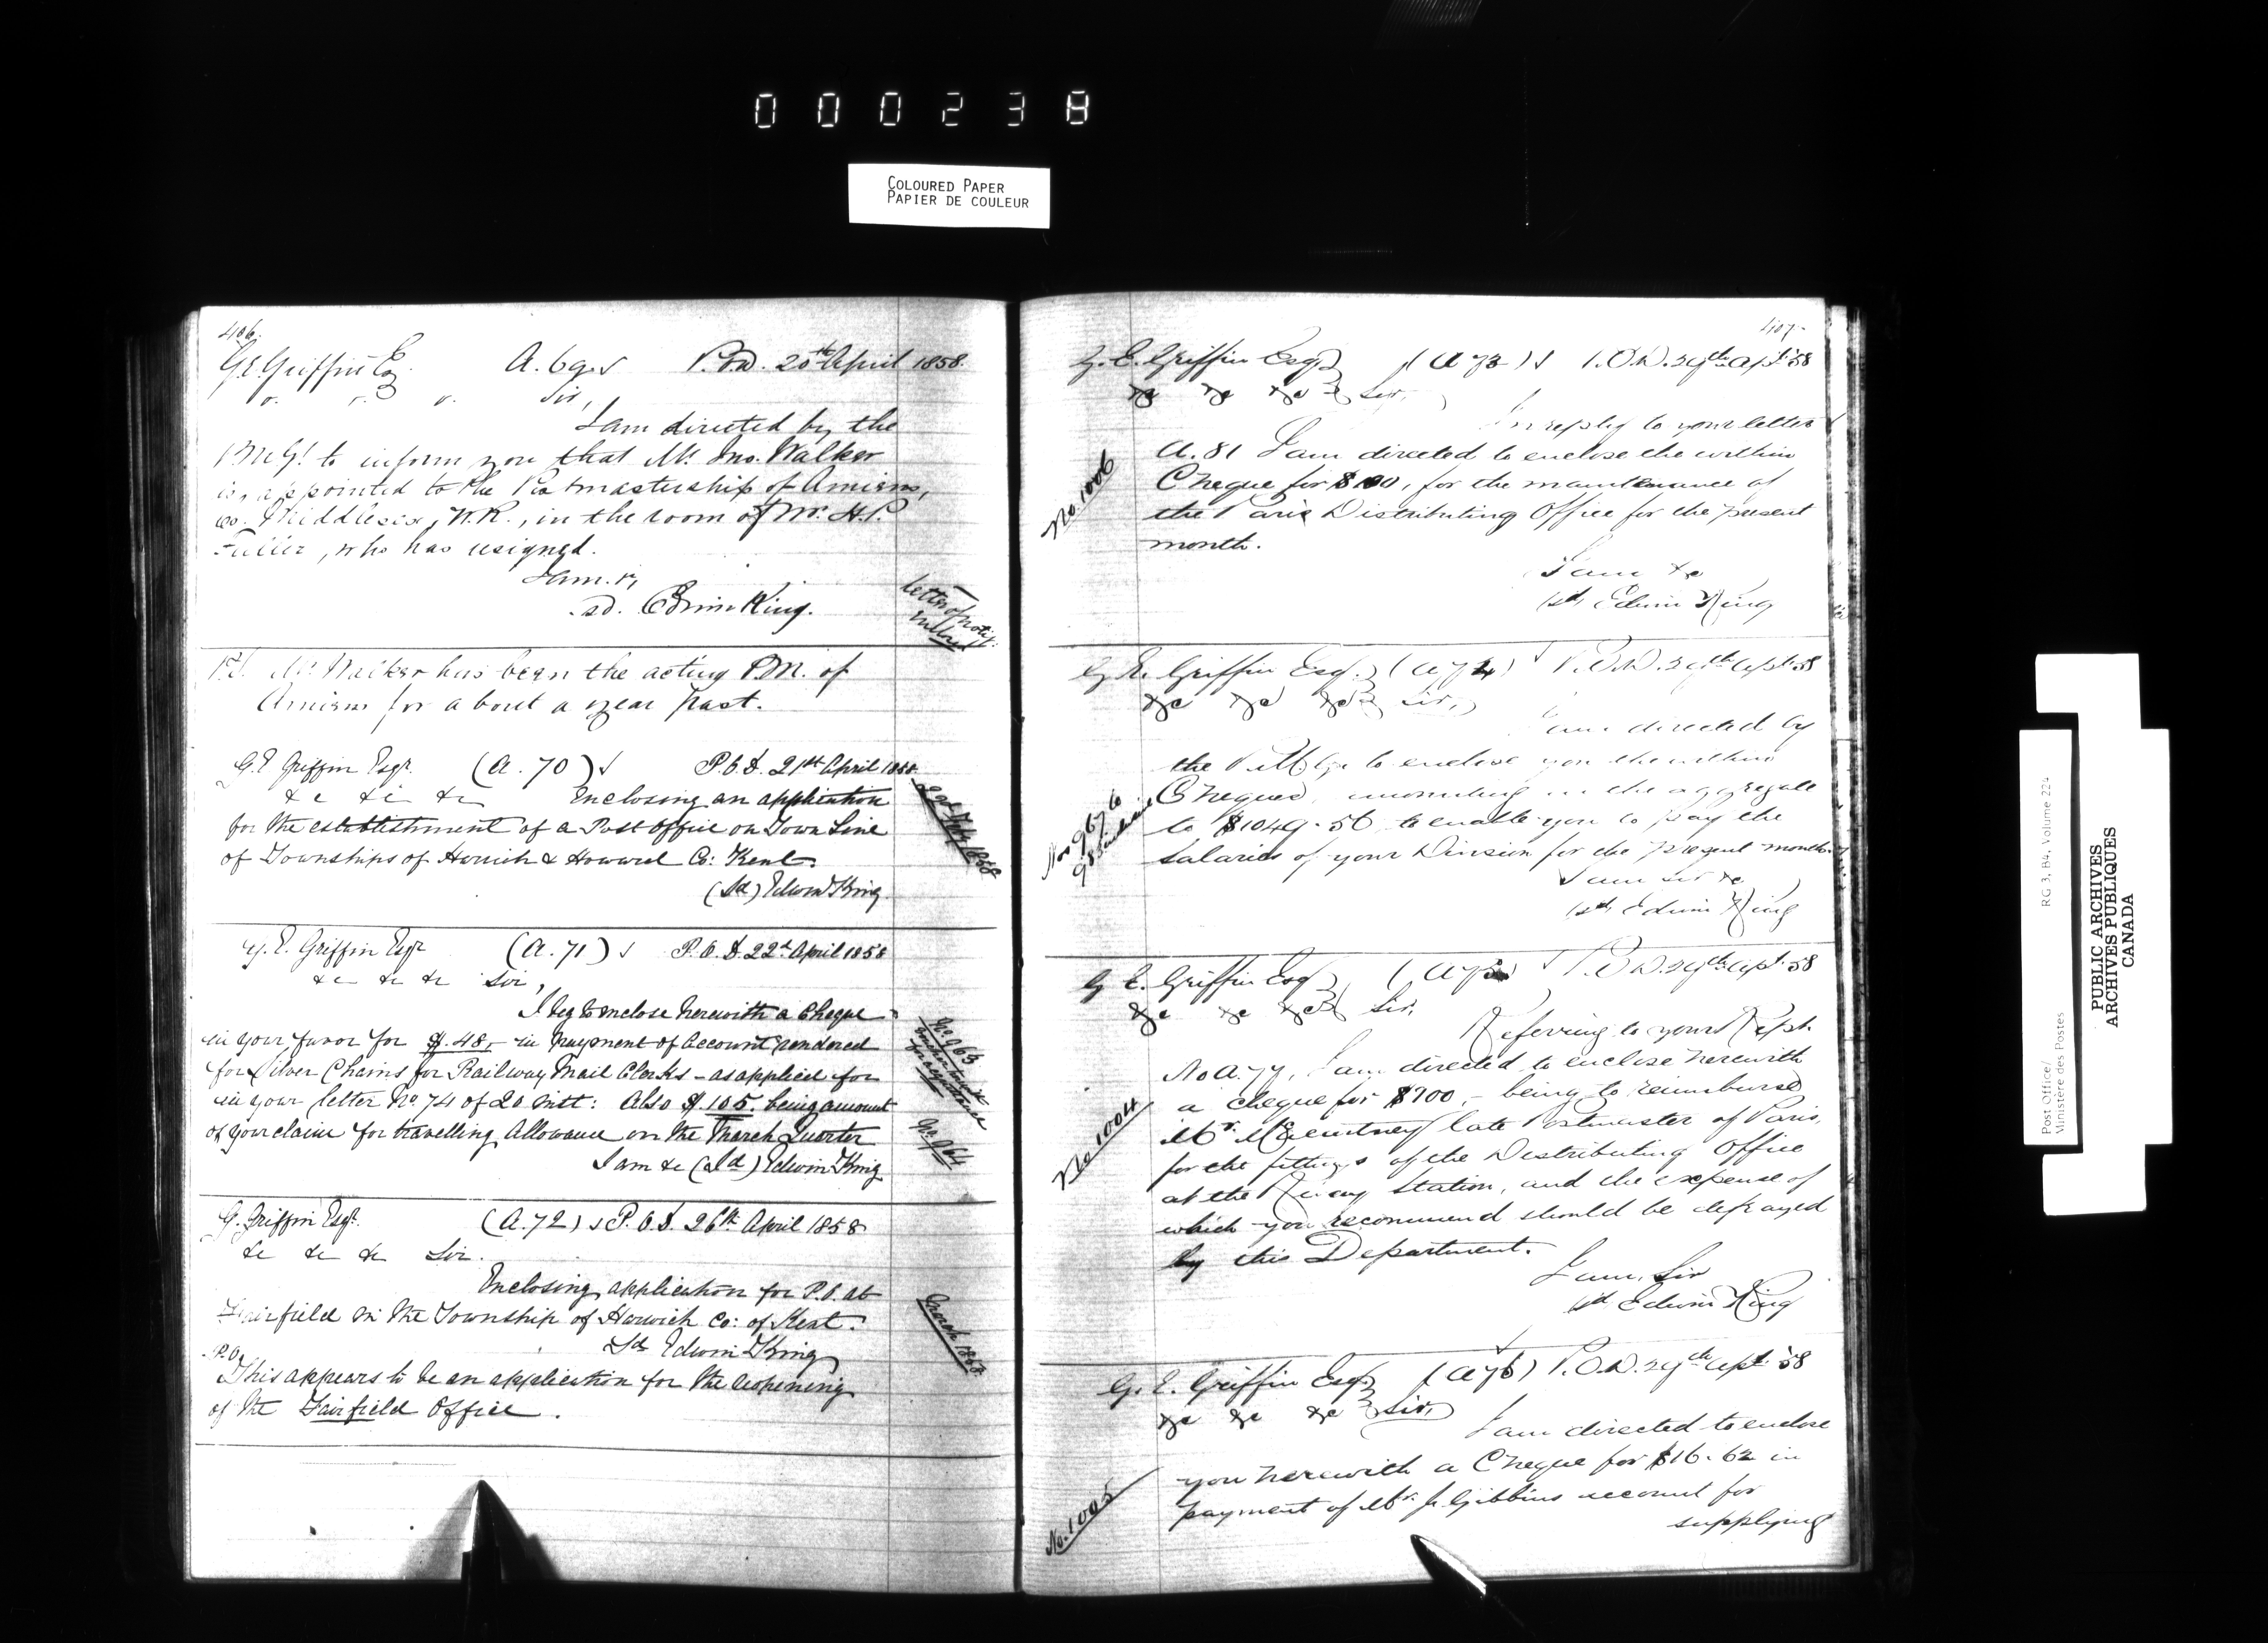 000238
COLOURED PAPER
PAPIER DE COULEUR
406.
G.E. Griffin Esq A. 69. P.O.D. 20th April 1858.
Sir,
I am directed by the
P.M.Gl. to inform you that Mr. Jno. Walker
is appointed to the Postmastership of Amiens,
Co. Middlesex, W.R., in the room of Mr. H.P.
Fuller, who has resigned.
I am.
sd. Edwin King.
letter of notif.
P.S. Mr. Walker has been the acting P.M. of
Amiens for about a year past.
G.E Griffin Esqr. (A. 70) P.O.D. 21st April 1858
&c &c &c Enclosing an application
for the establishment of a Post Office on Town Line
of Townships of Harwich & Howard Co: Kent.
(Sd) Edwin King
1858
G.E. Griffin Esqr (A. 71) P.O.D. 22d April 1858
&c &c &c Sir,
I beg to enclose herewith a Cheque
in your favor for $.48,- in payment of Account rendered
for Silver Chains for Railway Mail Clerks - as applied for
in your letter No. 74 of 20 Inst: Also $.105. being amount
of your claim for travelling Allowance on the March Quarter
I am &c (Sd) Edwin King
No. 963
No. 964
G. Griffin Esqr. (A.72) P.O.D. 26th April 1858
&c &c &c Sir.
Enclosing application for P.O. at
Fairfield in the Township of Harwich Co: of Kent.
Sd Edwin King
P.O.
This appears to be an application for the reopening
of the Fairfield Office.
407.
G.E. Griffin Esq (A 73) P.O.D. 29th Apl. 58
&c &c &c Sir,
In reply to your letter
A.81 I am directed to enclose the within
Cheque for $100, for the maintenance of
the Paris Distributing Office for the present
month.
No. 1006
I am &c
sd Edwin King
G.E. Griffin Esq. (A 74) P.O.D. 29th Apl. 58
&c &c &c Sir,
I am directed by
the P.M.G. to enclose you the within
Cheques, amounting in the aggregate
to $1049.56 to enable you to pay the
salaries of your Division for the present month.
Nos 967 to
983 inclusive
I am Sir &c
sd Edwin King
G.E. Griffin Esq (A 75) P.O.D. 29th Apl. 58
&c &c &c Sir,
Referring to your Rept.
No A.77, I am directed to enclose herewith
a cheque for $700,- being to reimburse
Mr. McCartney late Postmaster of Paris,
for the fittings of the Distributing Office
at the Rway Station, and the expense of
which you recommend should be defrayed
by this Department.
No. 1004
I am, Sir
sd Edwin King
G.E. Griffin Esq (A 76) P.O.D. 29th Apl. 58
&c &c &c Sir,
I am directed to enclose
you herewith a Cheque for $16.62 in
payment of Mr. J. Gibbins account for
supplying
No. 1005
Post Office/ RG 3, B4, Volume 224
Ministère des Postes
PUBLIC ARCHIVES
ARCHIVES PUBLIQUES
CANADA